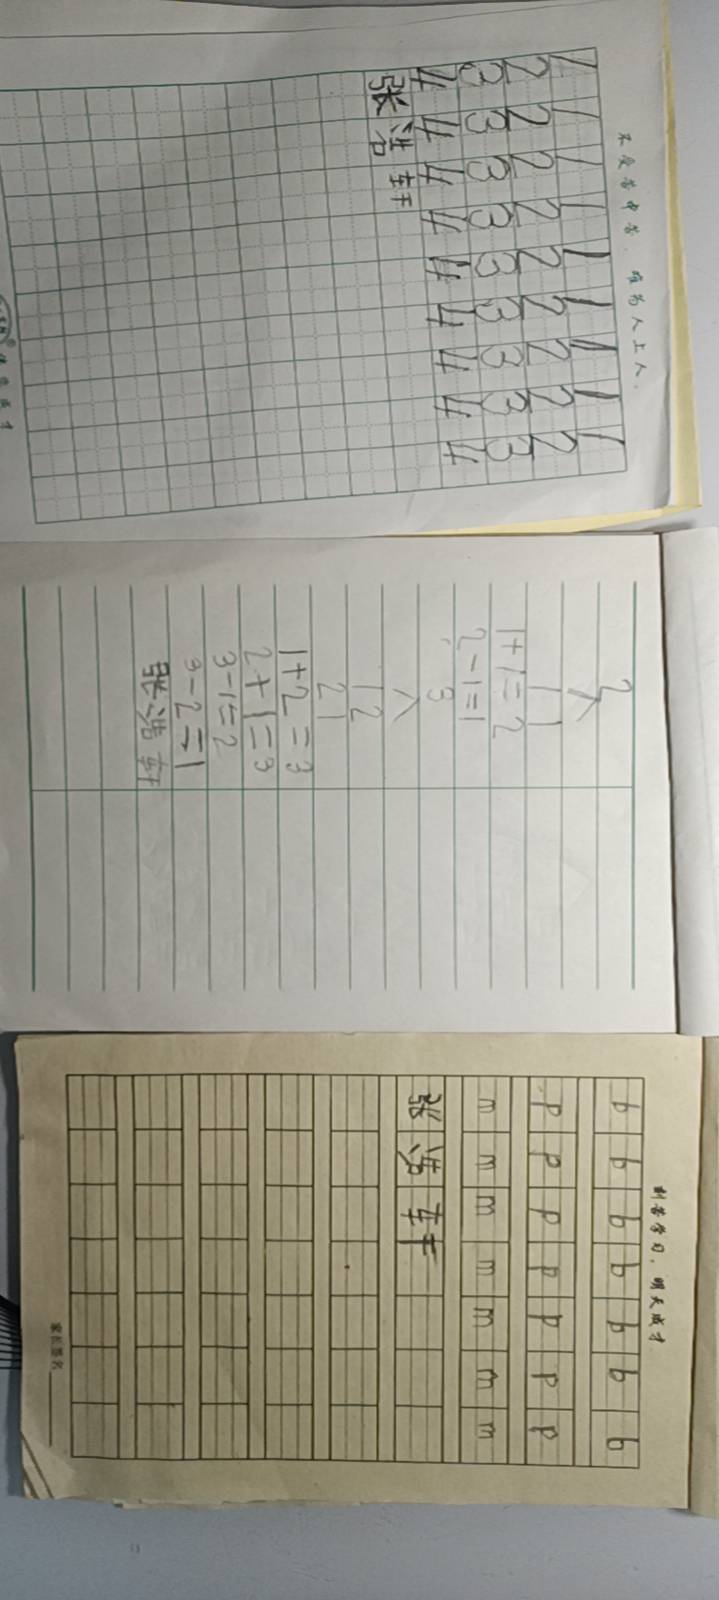 不受苦中苦，难为人上人.
1 1 1 1 1 1 1 1 1
2 2 2 2 2 2 2 2 2
3 3 3 3 3 3 3 3 3
4 4 4 4 4 4 4 4 4
张浩轩
2
∧
1 1
1+1=2
2-1=1
3
∧
1 2
2 1
1+2=3
2+1=3
3-1=2
3-2=1
张浩轩
刻苦学习，明天成才
b b b b b b b
p p p p p p p
m m m m m m m
张浩轩
家长签名